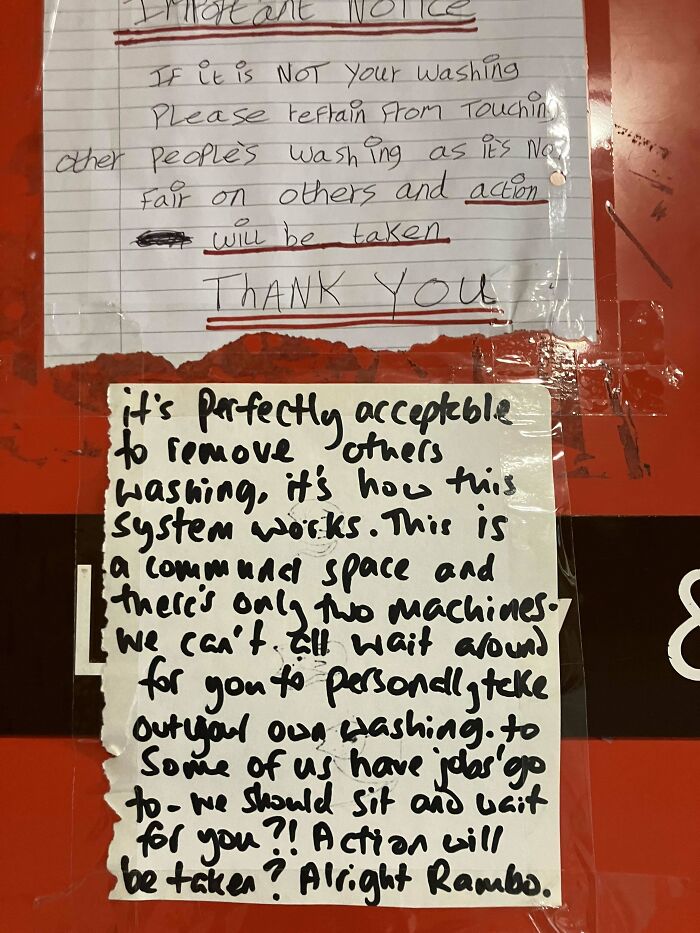 Important Notice
IF it is NOT your washing
Please refrain from Touching
other people's washing as it's No
fair on others and action
will be taken
THANK YOU
it's perfectly acceptable
to remove others
washing, it's how this
system works. This is
a communal space and
there's only two machines.
we can't all wait around
for you to personally take
out your own washing. to
Some of us have jobs go
to - we should sit and wait
for you?! Action will
be taken? Alright Rambo.
L y &